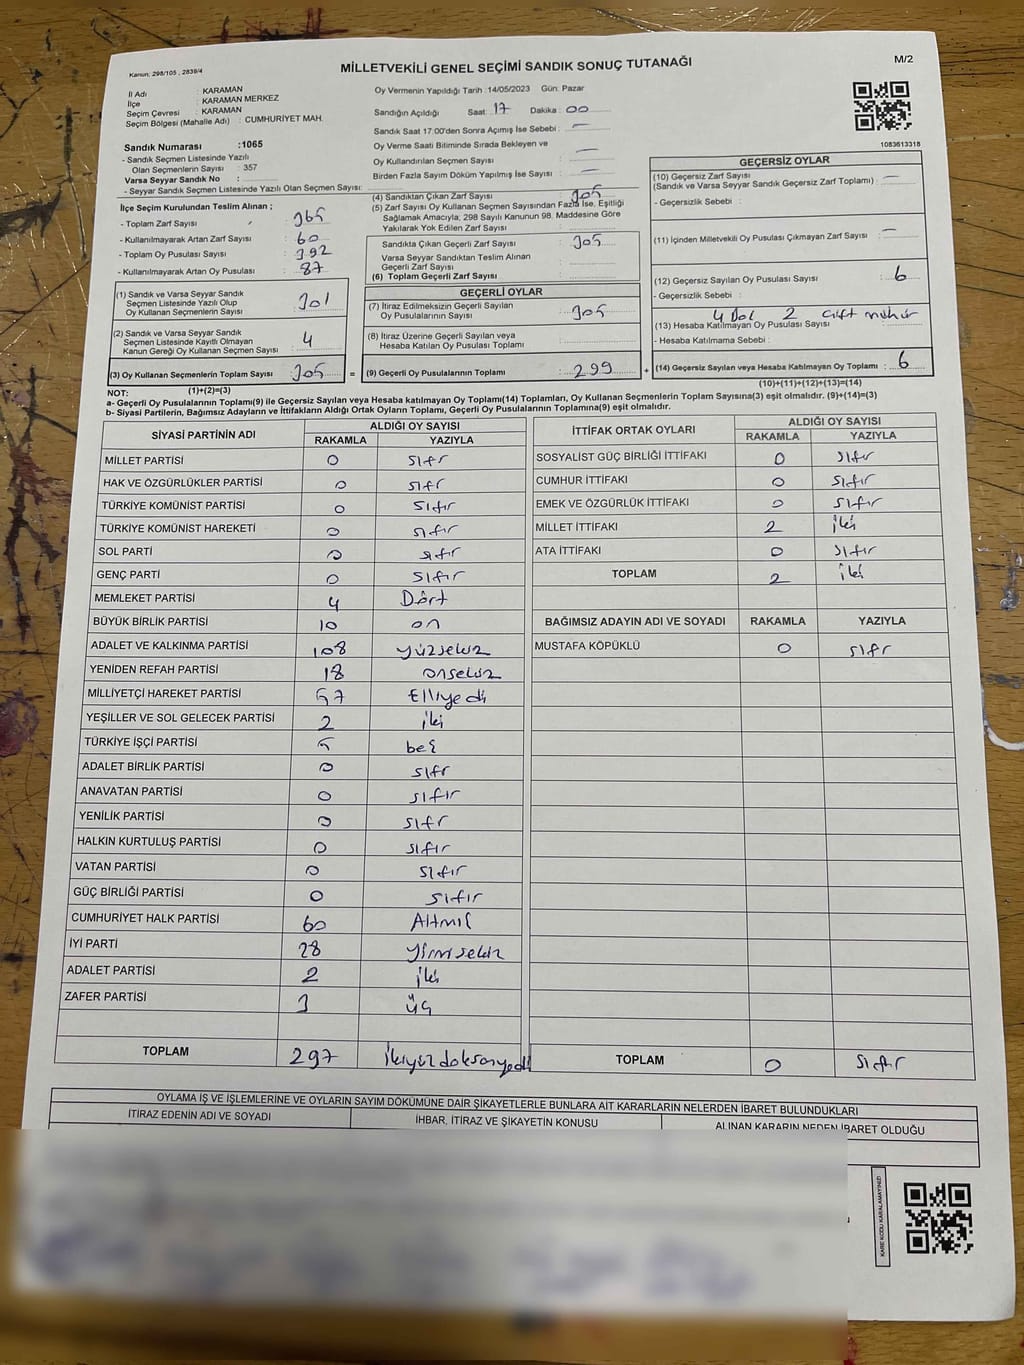 Kanun; 298/105 , 2839/4
MİLLETVEKİLİ GENEL SEÇİMİ SANDIK SONUÇ TUTANAĞI
M/2
İl Adı : KARAMAN
İlçe : KARAMAN MERKEZ
Seçim Çevresi : KARAMAN
Seçim Bölgesi (Mahalle Adı) : CUMHURİYET MAH.
Sandık Numarası :1065
- Sandık Seçmen Listesinde Yazılı
Olan Seçmenlerin Sayısı : 357
Varsa Seyyar Sandık No :
- Seyyar Sandık Seçmen Listesinde Yazılı Olan Seçmen Sayısı:
Oy Vermenin Yapıldığı Tarih :14/05/2023 Gün: Pazar
Sandığın Açıldığı Saat: 17 Dakika : 00
Sandık Saat 17:00'den Sonra Açımış İse Sebebi : —
Oy Verme Saati Bitiminde Sırada Bekleyen ve
Oy Kullandırılan Seçmen Sayısı : —
Birden Fazla Sayım Döküm Yapılmış İse Sayısı : —
1083613318
İlçe Seçim Kurulundan Teslim Alınan ;
- Toplam Zarf Sayısı : 365
- Kullanılmayarak Artan Zarf Sayısı : 60
- Toplam Oy Pusulası Sayısı : 392
- Kullanılmayarak Artan Oy Pusulası : 87
(1) Sandık ve Varsa Seyyar Sandık
Seçmen Listesinde Yazılı Olup
Oy Kullanan Seçmenlerin Sayısı : 301
(2) Sandık ve Varsa Seyyar Sandık
Seçmen Listesinde Kayıtlı Olmayan
Kanun Gereği Oy Kullanan Seçmen Sayısı : 4
(3) Oy Kullanan Seçmenlerin Toplam Sayısı : 305
(4) Sandıktan Çıkan Zarf Sayısı : 305
(5) Zarf Sayısı Oy Kullanan Seçmen Sayısından Fazla İse, Eşitliği
Sağlamak Amacıyla; 298 Sayılı Kanunun 98. Maddesine Göre
Yakılarak Yok Edilen Zarf Sayısı :
Sandıkta Çıkan Geçerli Zarf Sayısı : 305
Varsa Seyyar Sandıktan Teslim Alınan
Geçerli Zarf Sayısı :
(6) Toplam Geçerli Zarf Sayısı :
GEÇERLİ OYLAR
(7) İtiraz Edilmeksizin Geçerli Sayılan
Oy Pusulalarının Sayısı : 305
(8) İtiraz Üzerine Geçerli Sayılan veya
Hesaba Katılan Oy Pusulası Toplamı :
= (9) Geçerli Oy Pusulalarının Toplamı : 299
GEÇERSİZ OYLAR
(10) Geçersiz Zarf Sayısı
(Sandık ve Varsa Seyyar Sandık Geçersiz Zarf Toplamı) : —
- Geçersizlik Sebebi :
(11) İçinden Milletvekili Oy Pusulası Çıkmayan Zarf Sayısı : —
(12) Geçersiz Sayılan Oy Pusulası Sayısı : 6
- Geçersizlik Sebebi :
4 Bol 2 Çift mühür
(13) Hesaba Katılmayan Oy Pusulası Sayısı :
- Hesaba Katılmama Sebebi :
+ (14) Geçersiz Sayılan veya Hesaba Katılmayan Oy Toplamı : 6
NOT: (1)+(2)=(3)
(10)+(11)+(12)+(13)=(14)
a- Geçerli Oy Pusulalarının Toplamı(9) ile Geçersiz Sayılan veya Hesaba katılmayan Oy Toplamı(14) Toplamları, Oy Kullanan Seçmenlerin Toplam Sayısına(3) eşit olmalıdır. (9)+(14)=(3)
b- Siyasi Partilerin, Bağımsız Adayların ve İttifakların Aldığı Ortak Oyların Toplamı, Geçerli Oy Pusulalarının Toplamına(9) eşit olmalıdır.
SİYASİ PARTİNİN ADI ALDIĞI OY SAYISI
RAKAMLA YAZIYLA
MİLLET PARTİSİ 0 sıfr
HAK VE ÖZGÜRLÜKLER PARTİSİ 0 sıfr
TÜRKİYE KOMÜNİST PARTİSİ 0 sıfır
TÜRKİYE KOMÜNİST HAREKETİ 0 sıfır
SOL PARTİ 0 sıfır
GENÇ PARTİ 0 sıfır
MEMLEKET PARTİSİ 4 Dört
BÜYÜK BİRLİK PARTİSİ 10 on
ADALET VE KALKINMA PARTİSİ 108 yüzsekiz
YENİDEN REFAH PARTİSİ 18 onsekiz
MİLLİYETÇİ HAREKET PARTİSİ 57 Elliyedi
YEŞİLLER VE SOL GELECEK PARTİSİ 2 iki
TÜRKİYE İŞÇİ PARTİSİ 5 beş
ADALET BİRLİK PARTİSİ 0 sıfr
ANAVATAN PARTİSİ 0 sıfır
YENİLİK PARTİSİ 0 sıfr
HALKIN KURTULUŞ PARTİSİ 0 sıfır
VATAN PARTİSİ 0 sıfır
GÜÇ BİRLİĞİ PARTİSİ 0 sıfır
CUMHURİYET HALK PARTİSİ 60 Altmış
İYİ PARTİ 28 yirmisekiz
ADALET PARTİSİ 2 iki
ZAFER PARTİSİ 3 üç
TOPLAM 297 ikiyüzdoksanyedi
İTTİFAK ORTAK OYLARI ALDIĞI OY SAYISI
RAKAMLA YAZIYLA
SOSYALİST GÜÇ BİRLİĞİ İTTİFAKI 0 sıfır
CUMHUR İTTİFAKI 0 sıfır
EMEK VE ÖZGÜRLÜK İTTİFAKI 0 sıfır
MİLLET İTTİFAKI 2 iki
ATA İTTİFAKI 0 sıfır
TOPLAM 2 iki
BAĞIMSIZ ADAYIN ADI VE SOYADI RAKAMLA YAZIYLA
MUSTAFA KÖPÜKLÜ 0 sıfr
TOPLAM 0 sıfır
OYLAMA İŞ VE İŞLEMLERİNE VE OYLARIN SAYIM DÖKÜMÜNE DAİR ŞİKAYETLERLE BUNLARA AİT KARARLARIN NELERDEN İBARET BULUNDUKLARI
İTİRAZ EDENİN ADI VE SOYADI İHBAR, İTİRAZ VE ŞİKAYETİN KONUSU ALINAN KARARIN NEDEN İBARET OLDUĞU
KARE KODU KARALAMAYINIZ!